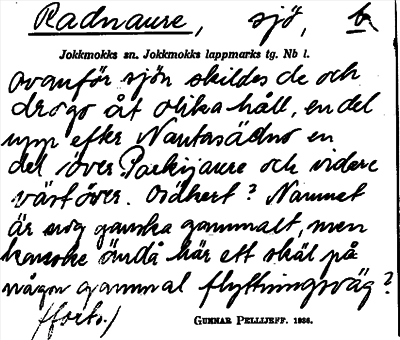 Radnaure, sjö, b
Jokkmokks sn. Jokkmokks lappmarks tg. Nb l.
ovanför sjön skildes de och
drogo åt olika håll, en del
upp efter Nautasädno en
del över Parkijaure och vidare
väst över. Osäkert? Namnet
är nog ganska gammalt, men
kanske ändå här ett skäl på
någon gammal flyttningsväg?
(forts.)
GUNNAR PELLIJEFF. 1936.